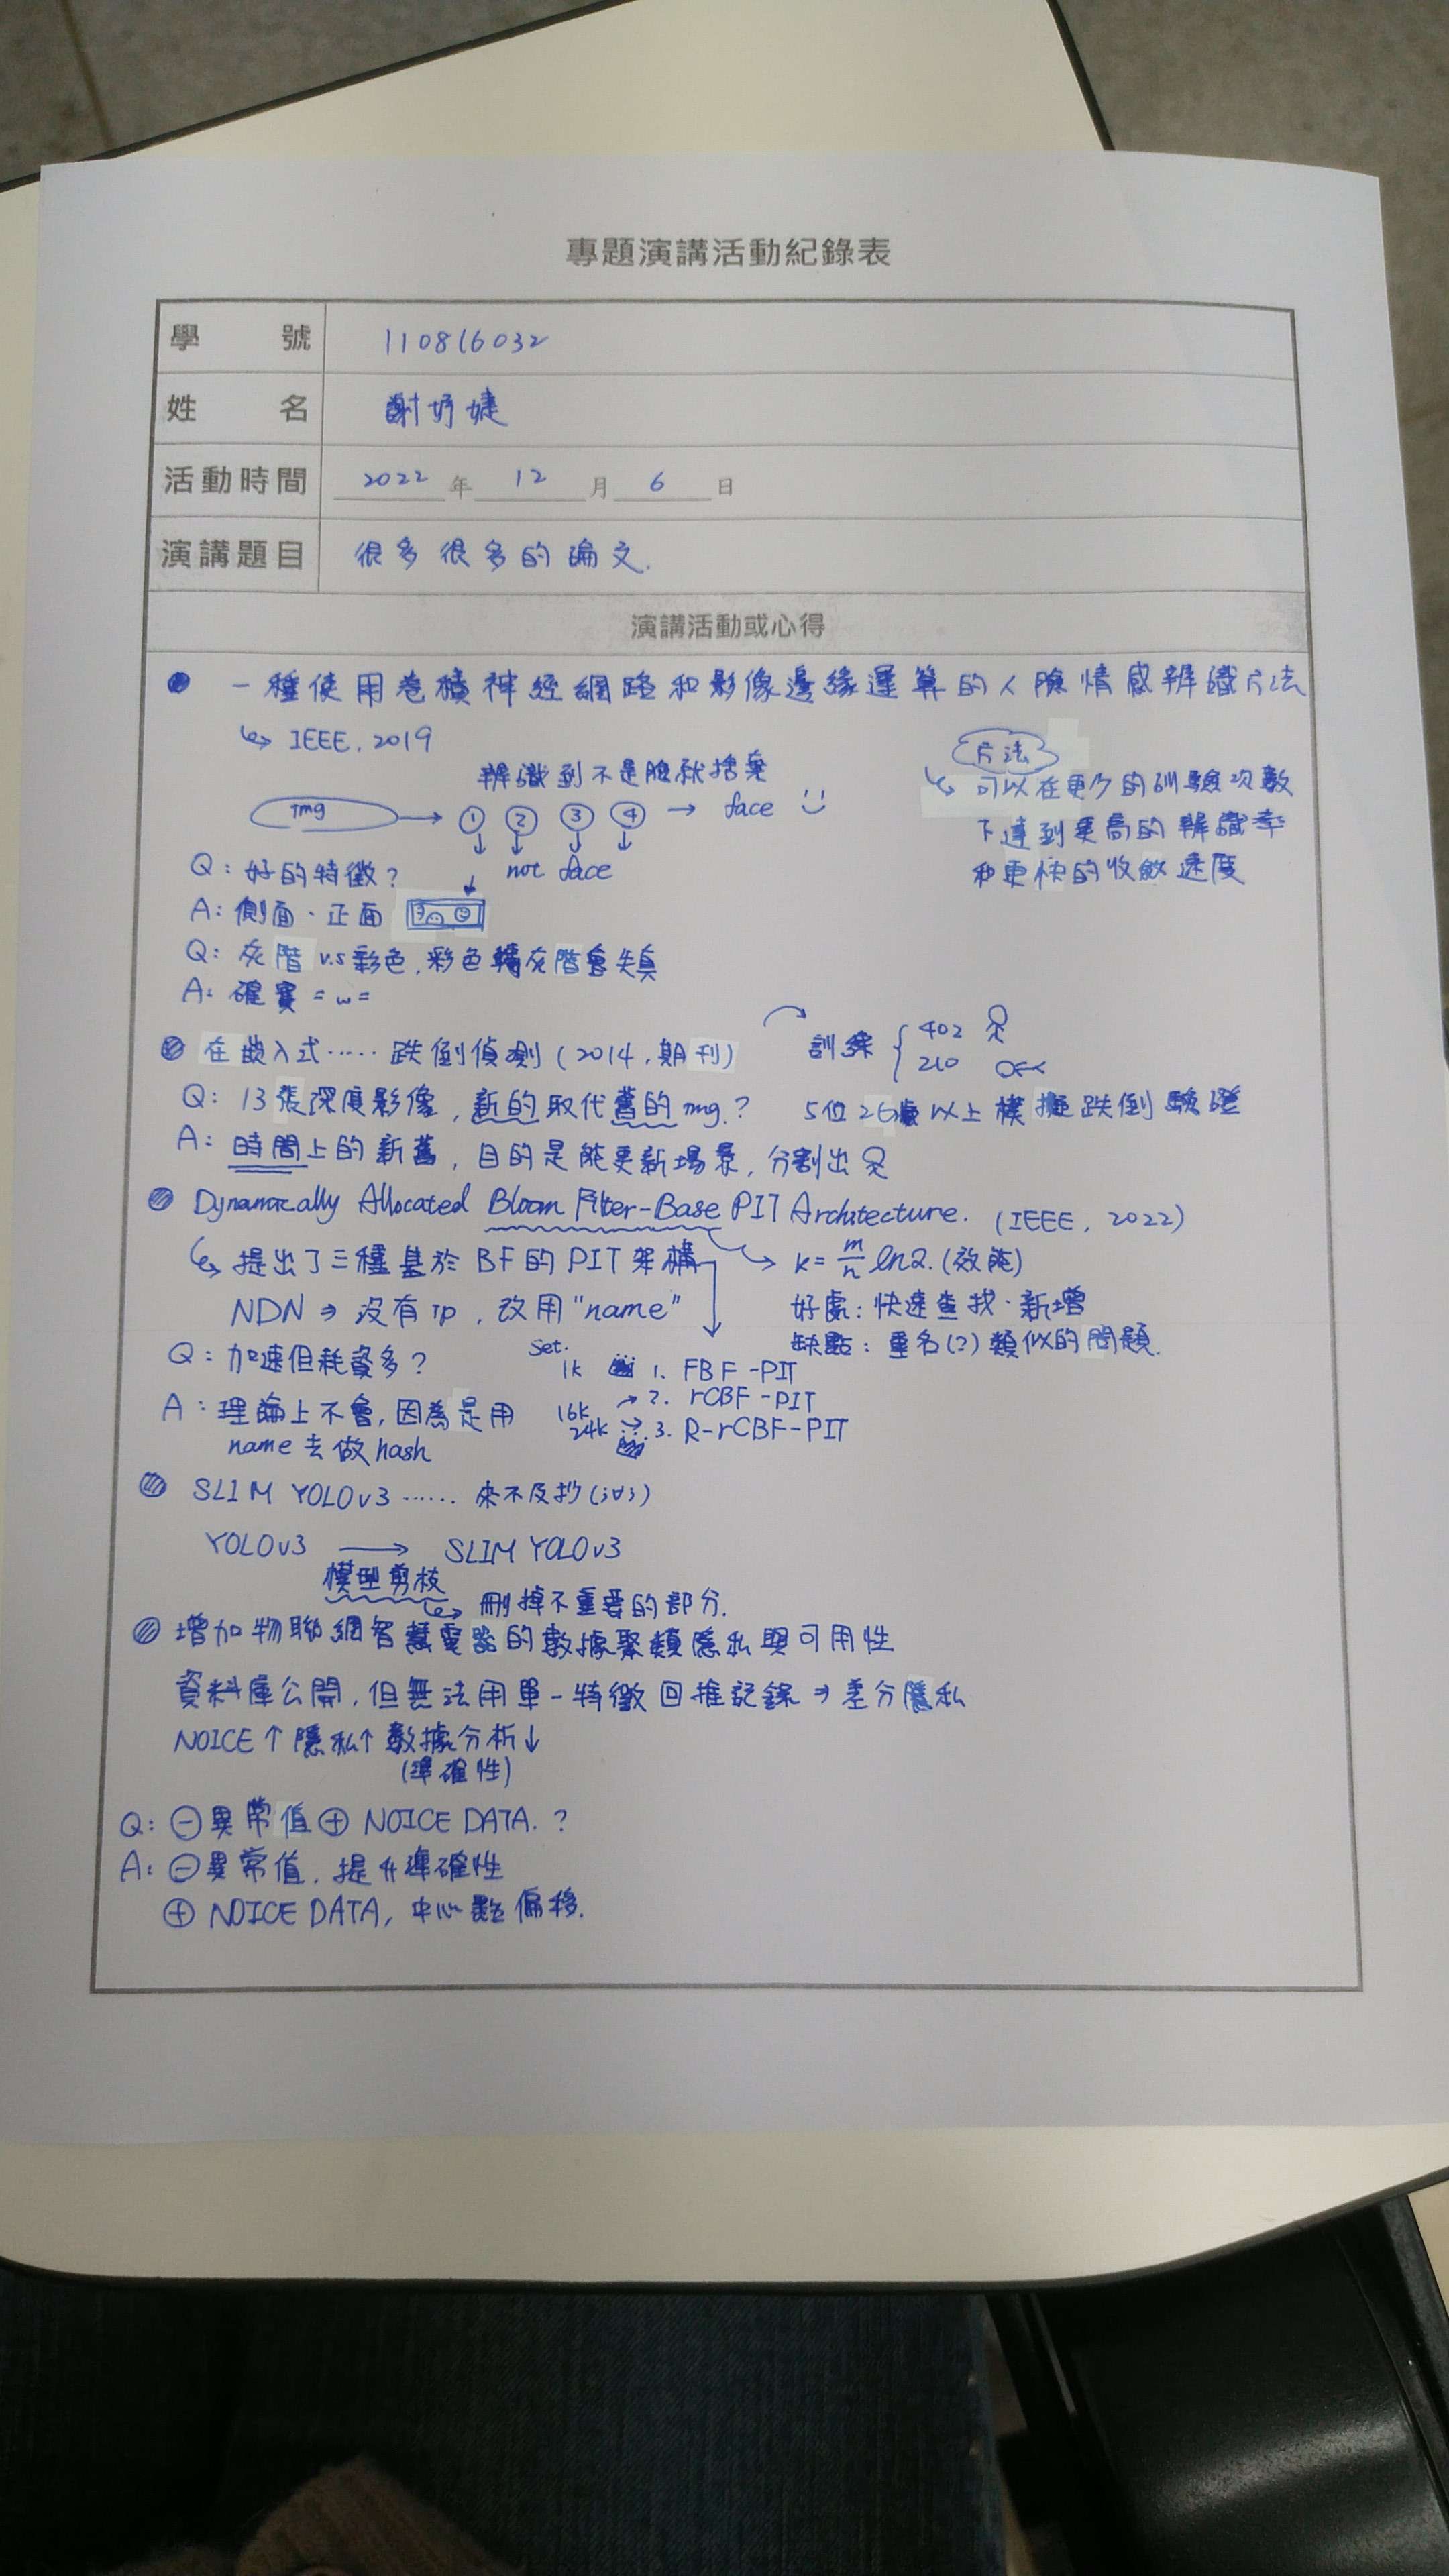 專題演講活動紀錄表
學號 110816032
姓名 謝妤婕
活動時間 2022 年 12 月 6 日
演講題目 很多很多的論文.
演講活動或心得
一種使用卷積神經網路和影像邊緣運算的人臉情感辨識方法
↳ IEEE, 2019
方法
辨識到不是臉就捨棄
可以在更少的訓練次數
img → ① ② ③ ④ → face
下達到更高的辨識率
not face
和更快的收斂速度
Q: 好的特徵?
A: 側面、正面
Q: 灰階 v.s 彩色, 彩色轉灰階會失真
A: 確實 = w =
在嵌入式…… 跌倒偵測 (2014, 期刊)
訓練 { 402
210
Q: 13張深度影像, 新的取代舊的 img.?
5位 26歲以上模擬跌倒驗證
A: 時間上的新舊, 目的是能更新場景, 分割出
Dynamically Allocated Bloom Filter-Base PIT Architecture. (IEEE, 2022)
↳ 提出了三種基於 BF 的 PIT 架構
k = m/n ln2. (效能)
NDN ⇒ 沒有 ip, 改用 "name"
好處: 快速查找、新增
缺點: 重名(?) 類似的問題.
Q: 加速但耗資多?
Set.
1k 1. FBF-PIT
A: 理論上不會, 因為是用
16k → 2. rCBF-PIT
name 去做 hash
24k 3. R-rCBF-PIT
SLIM YOLOv3 …… 來不及抄(;∀;)
YOLOv3 → SLIM YOLOv3
模型剪枝
↳ 刪掉不重要的部分.
增加物聯網智慧電器的數據聚類隱私與可用性
資料庫公開, 但無法用單一特徵回推記錄 ⇒ 差分隱私
NOICE ↑ 隱私↑ 數據分析↓
(準確性)
Q: ⊖異常值 ⊕ NOICE DATA. ?
A: ⊖異常值, 提升準確性
⊕ NOICE DATA, 中心點偏移.